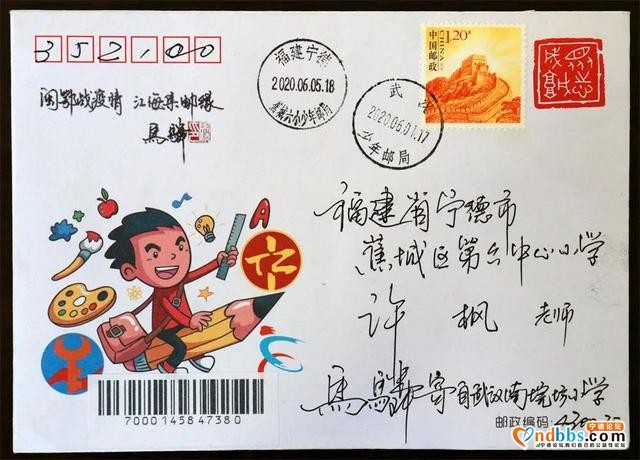 352100
福建宁德
2020.06.05.18
蕉城六小少年邮局
1.20元
中国邮政
CHINA
武
2020.06.01.17
少年邮局
闽鄂战疫情 江海集邮缘
馬驊
A
福建省宁德市
蕉城区第六中心小学
许枫 老师
馬驊寄自武汉南
7000145847380
邮政编码：
ndbbs.com
宁德论坛